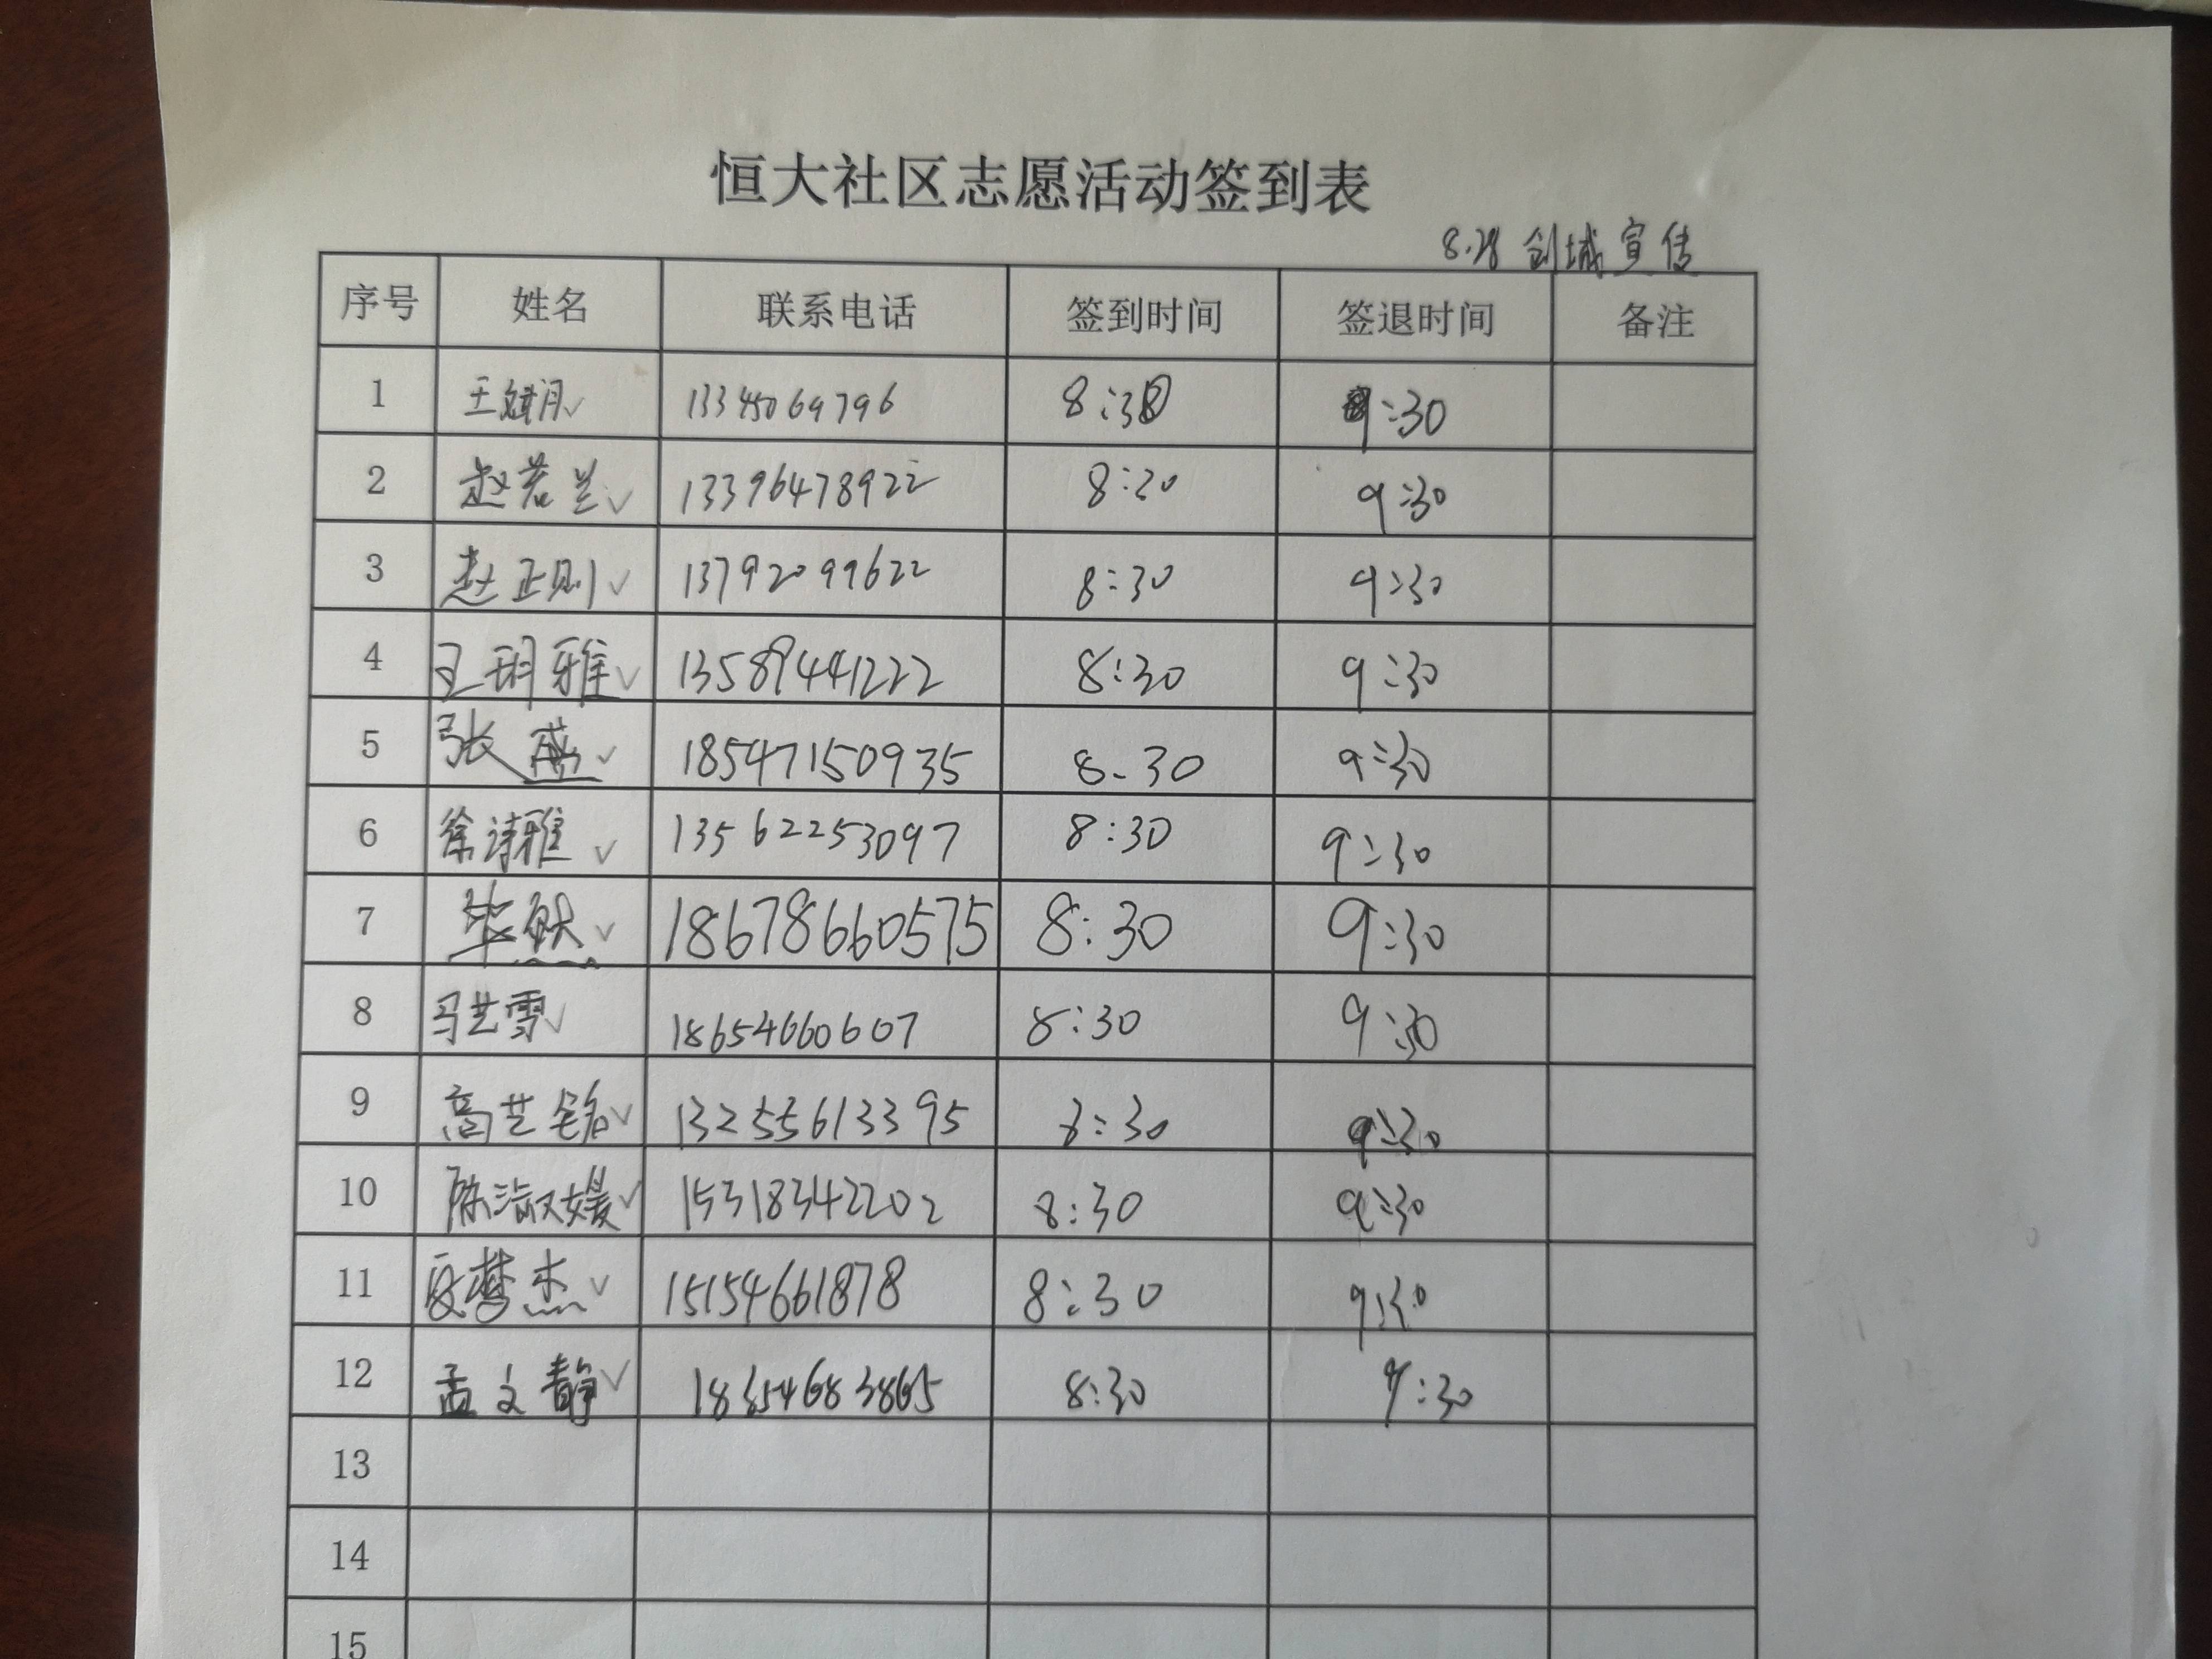 恒大社区志愿活动签到表
8.28 创城宣传
序号 姓名 联系电话 签到时间 签退时间 备注
1 王 月 ✓ 13345069796 8:30 9:30
2 赵若兰 ✓ 13396478922 8:30 9:30
3 赵正则 ✓ 13792099622 8:30 9:30
4 王玥雅 ✓ 13589441222 8:30 9:30
5 张盛 ✓ 18547150935 8.30 9:30
6 徐诗雅 ✓ 13562253097 8:30 9:30
7 毕然 ✓ 18678660575 8:30 9:30
8 马艺雪 ✓ 18654660607 8:30 9:30
9 高艺铭 ✓ 13255613395 8:30 9:30
10 陈淑媛 ✓ 15318342202 8:30 9:30
11 夏梦杰 ✓ 15154661878 8:30 9:30
12 孟文静 ✓ 8:30 9:30
13
14
15